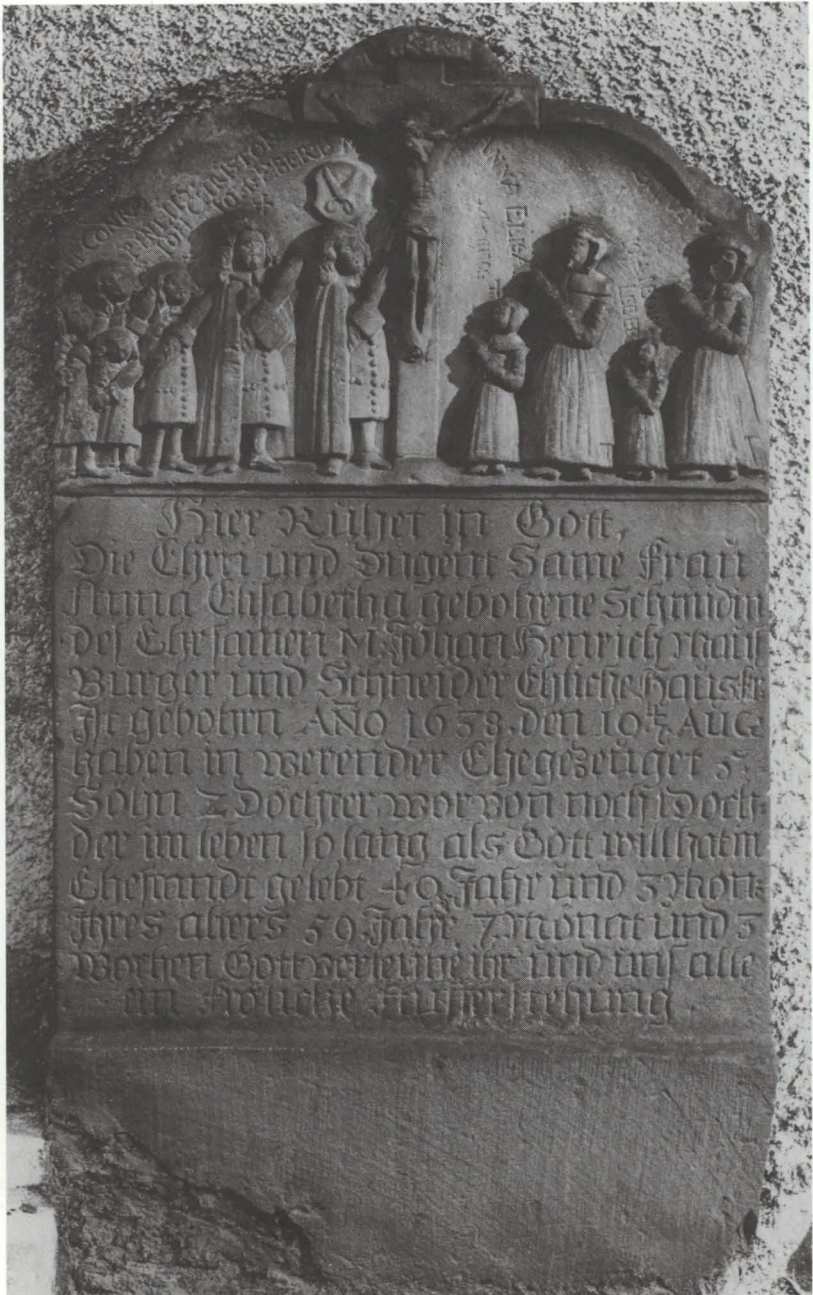 INRI
CONR
PHILIPS CHRISTOF
ANNA ELISA
Hier Rühet in Gott,
Die Ehrn und dugent Same Frau
Anna Elisabetha gebohrne Schmidin
des Ehrsamen M. Johan Henrich
Burger und Schneider Ehliche Hausfr
Ist gebohrn AÑO 1638 den 10t AUG
haben in werender Ehe gezeuget 5
Söhn 2 Döchter wor von noch 1 Doch
der im leben so lang als Gott will hat in
Ehestandt gelebt 40 Jahr und 3 Mon
Ihres alters 59 Jahr 7 Monat und 3
Wochen Gott verleihe ihr und uns alle
ein Fröliche Aufferstehung.